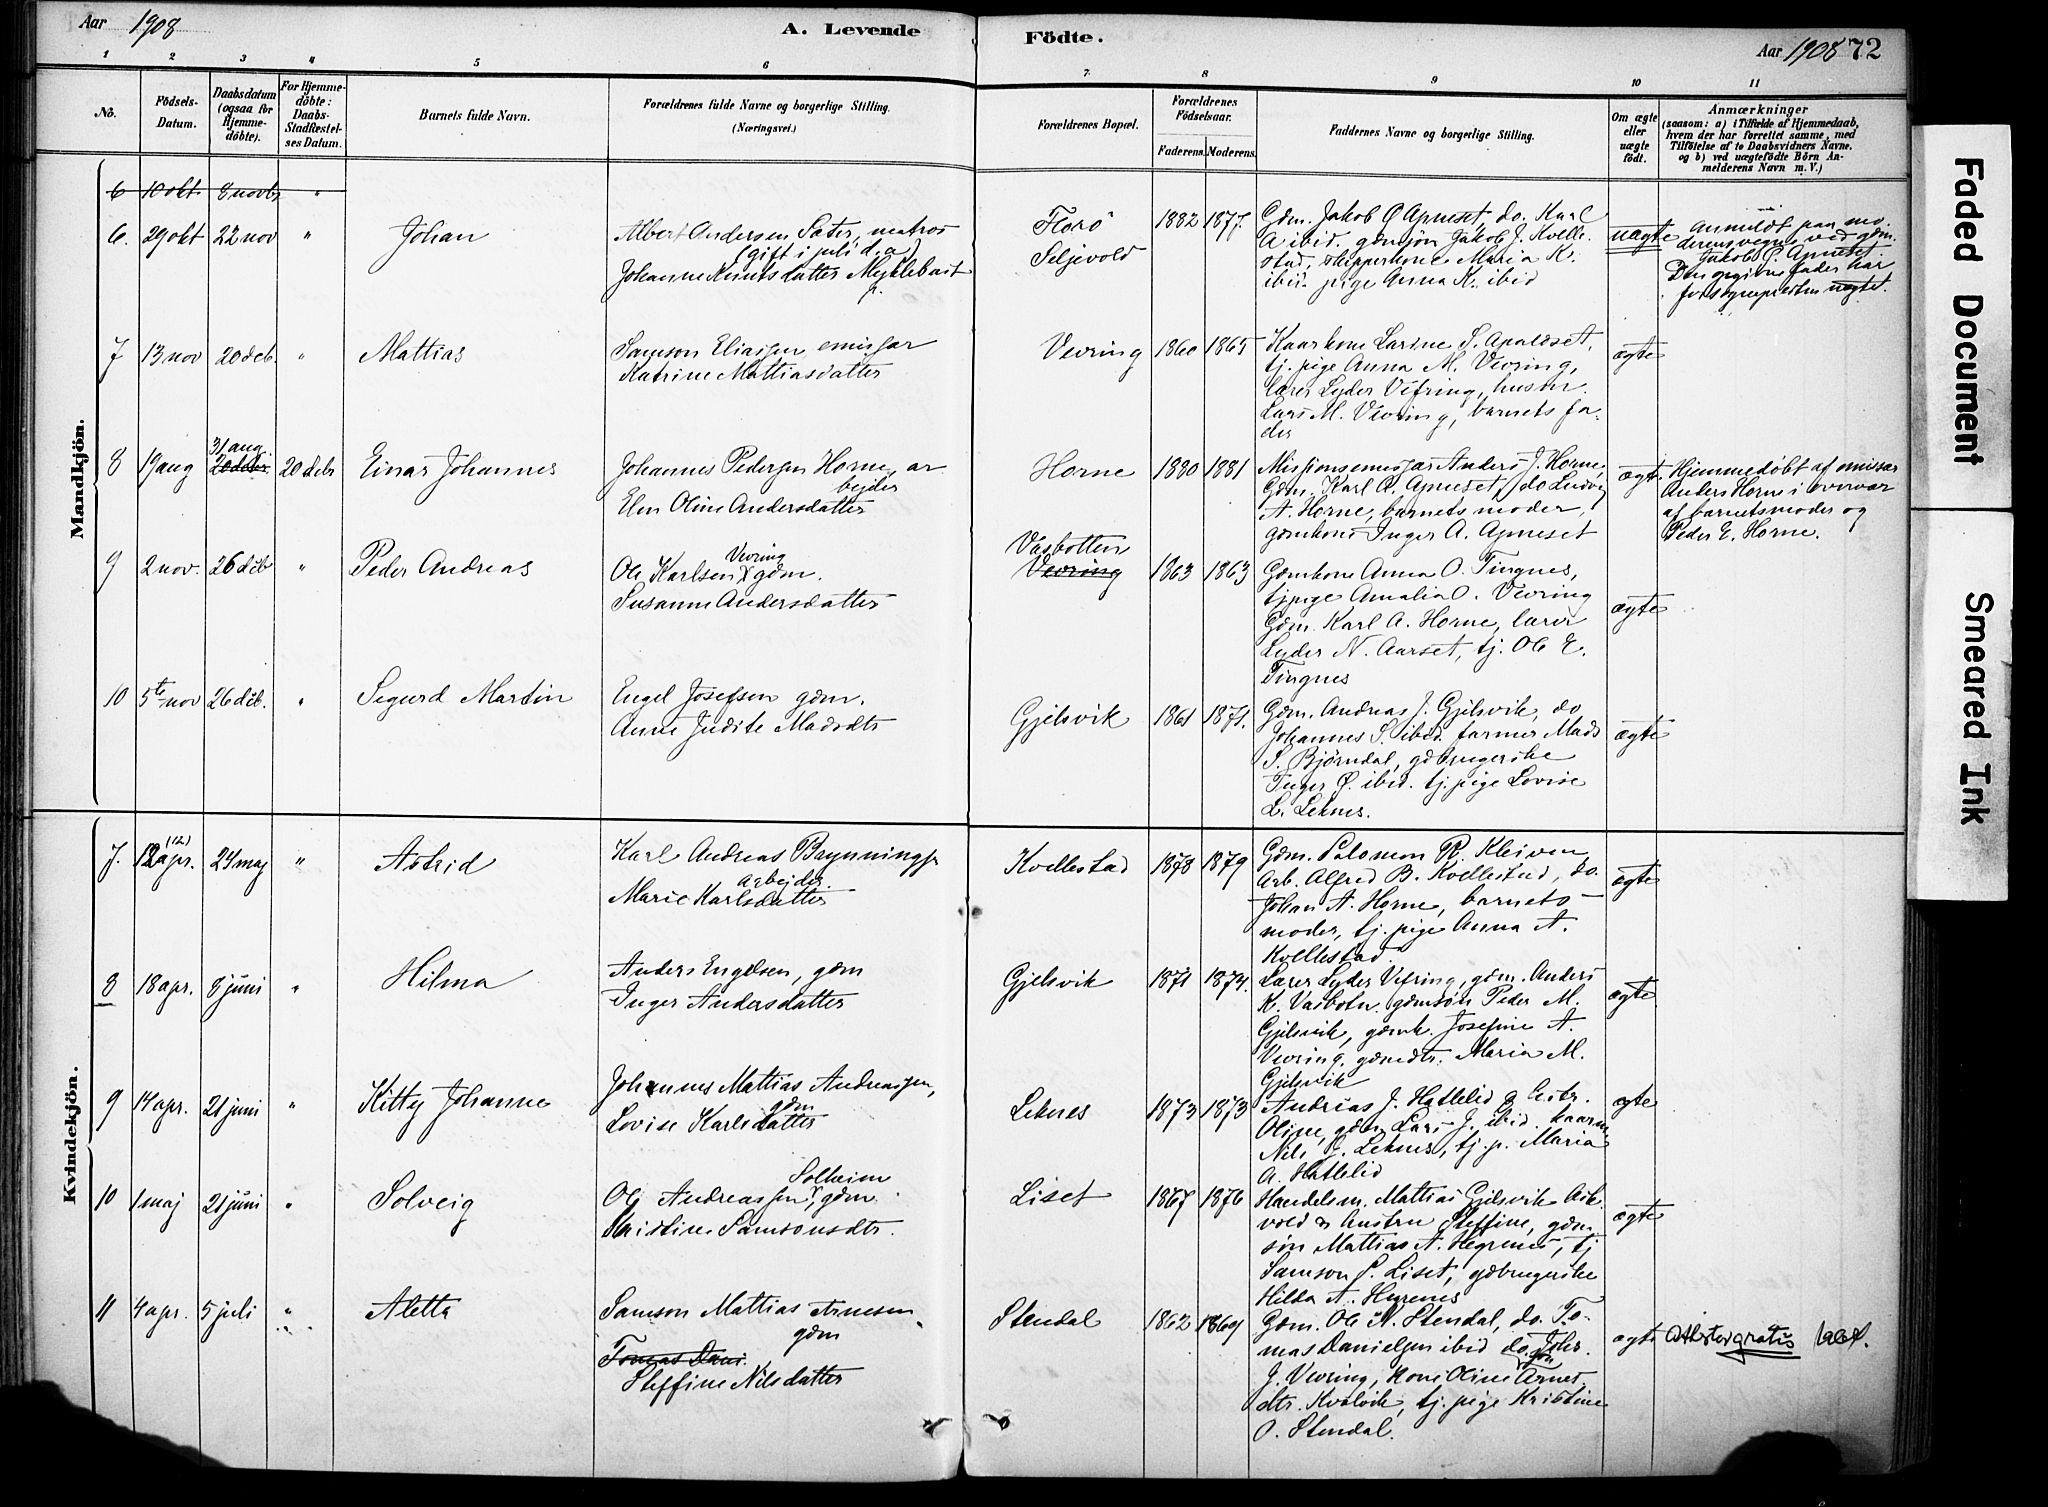 Aar 1908
A. Levende
Födte.
Aar 1908 72
1 2 3 4 5 6 7 8 9 10 11
No.
Födsels-Datum.
Daabsdatum (ogsaa for Hjemmedöbte).
For Hjemmedöbte: Daabs-Stadfæstelses Datum.
Barnets fulde Navn.
Forældrenes fulde Navne og borgerlige Stilling.
(Næringsvei.)
Forældrenes Bopæl.
Forældrenes Födselsaar.
Faderens. Moderens.
Faddernes Navne og borgerlige Stilling.
Om ægte eller uægte födt.
Anmærkninger
(saasom: a) i Tilfælde af Hjemmedaab,
hvem der har forrettet samme, med
Tilföielse af to Daabsvidners Navne.
og b) ved uægtefödte Börn Anmelderens Navn m. V.)
Mandkjön.
6 10 okt 8 novbr "
6. 29 okt 22 nov " Johan
Albert Andersen Sater, matros
(gift i juli d. a)
Johanne Knutsdatter Myklebust
Florö
Seljevold
1882 1877.
Gdm. Jakob O Apneset, do. Karl
A ibid. gdmsjön Jakob J. Kvelle-
stad, skipperkone Maria K.
ibid. pige Anna K. ibid
uægte
anmeldt paa mo-
derens vegne ved gdm.
Jakob O. Apneset.
Den opgivne fader har
for sogneprasten nægtet.
7 13 nov 20 deb " Mattias
Samson Eliassen emissær
Katrine Mattiasdatter
Vevring 1860 1865
Kaarkone Larine S. Apalset,
tj. pige Anna M. Vevring,
lærer Lyder Vefring, husm.
Lars M. Vevring, barnets fa-
der
ægte
8 19 aug 31 aug. 20 debr 20 debr Einar Johannes
Johannes Pedersen Horne, ar
bejder
Elen Oline Andersdatter
Horne 1880 1881
Missionsemissær Anders J. Horne,
Gdm. Karl A. Apneset, do Ludvig
A. Horne, barnets moder,
gdmkone Inger A. Apneset
ægte.
Hjemmedøbt af emissær
Anders Horne i overvær
af barnets moder og
Peder E. Horne.
9 2 nov. 26 deb " Peder Andreas
Vevring
Ole Karlsen gdm.
Susanne Andersdatter
Vasbotten
Vevring 1863 1863
Gdmkone Anna O. Tingnes,
tj pige Amalia O. Vevring
Gdm. Karl A. Horne, lærer
Lyder N. Aarset, tj. Ole E.
Tingnes
ægte
10 5te nov 26 deb. " Sigurd Martin
Engel Josefsen gdm.
Anne Judite Madsdtr
Gjelsvik 1861 1871.
Gdm. Andreas J. Gjelsvik, do
Johannes S. ibid. farmer Mads
S. Bjørndal, gdbrugerske
Inger O. ibid. tj. pige Lovise
L. Leknes.
ægte
Kvindekjön.
7. 12 apr. (12) 24 maj " Astrid
Karl Andreas Brynningss
arbejder.
Marie Karlsdatter
Kvellestad 1878 1879
Gdm. Salomon R. Kleiven,
Arb. Alfred B. Kvellestad, do.
Johan A. Horne, barnets
moder, tj. pige Anna A.
Kvellestad
ægte
8 18 apr. 8 juni " Hilma
Anders Engelsen, gdm
Inger Andersdatter
Gjelsvik 1871 1874.
Lærer Lyder Vefring, gdm. Anders
K. Vasbotn. gdmsøn Peder M.
Gjelsvik, gdmk. Josefine A.
Vevring, gdmdtr. Maria M.
Gjelsvik
ægte
9 14 apr. 21 juni " Kitty Johanne
Johannes Mattias Andreassen,
gdm
Lovise Karlsdatter
Leknes 1873 1873
Andreas J. Hatlelid
Oline, gdm. Lars J. ibid. kaarm.
Nils J. Leknes, tj. p. Maria
A. Hatlelid
ægte
10 1 maj 21 juni " Solveig
Solheim
Ole Andreassen gdm.
Kristine Samsonsdtr.
Liset 1867 1876
Handelsm. Mattias Gjelsvik Ask
vold & hustru Steffine, gdm
søn Mattias A. Hegrenes, tj
Samson S. Liset, gdbrugerske
Hilda A. Hegrenes
ægte
11 4 apr. 5 juli " Aletta
Samson Mattias Arnesen
gdm
Tomas Dani
Steffine Nilsdatter
Stendal 1862 1869
Gdm. Ole A. Stendal, do. To-
mas Danielsen ibid do. Joh.
J. Vevring, Kone Oline Arnes
dtr. Kvalvik, tj. pige Kristine
O. Stendal.
ægte Attester gratis
Faded Document
Smeared Ink